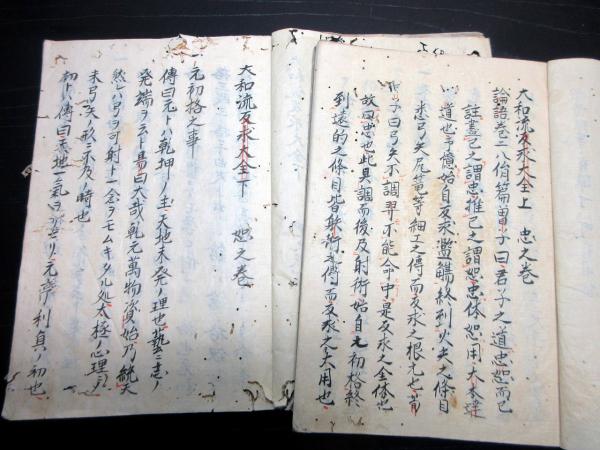 大和流反求大全上 忠之巻
論語巻二八佾篇曽子曰君子之道忠恕而已
註盡己之謂忠推己之謂恕忠体恕用大本達
道也予憶始自反求濫觴終到火矢之條目
悉弓矢尻篭等細工之傳而反求之根元也
子曰弓矢不調羿不能命中是反求之全体也
故曰忠也此具調而後及射術始自元初格終
到壊的之條目皆射術之傳而反求之大用也
大和流反求大全下 恕之巻
元初格之事
傳曰元トハ乾坤ノ主天地未発ノ理也藝ニ志ノ
発端ヲ云ト易曰大哉乾元萬物資始乃統天
然レハ弓可射ト一念ヲモムキタル処太極ノ心理
未弓矢ノ形ニ不及ノ時也
初トハ傳曰天地一氣ヲ元亨利貞ノ初也